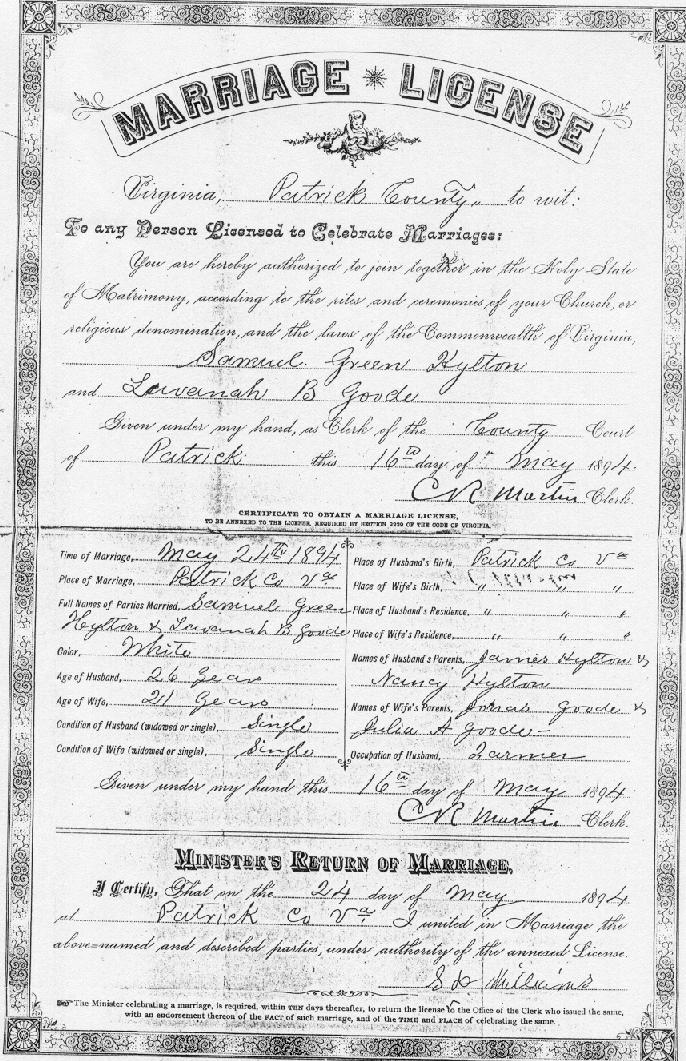 MARRIAGE LICENSE
Virginia, Patrick County, to wit:
To any Person Licensed to Celebrate Marriages:
You are hereby authorized to join together in the Holy State
of Matrimony, according to the rites and ceremonies of your Church, or
religious denomination, and the laws of the Commonwealth of Virginia,
Samuel Green Hylton
and Lavanah B Goode
Given under my hand, as Clerk of the County Court
of Patrick this 16th day of May 1894.
CR Martin Clerk.
CERTIFICATE TO OBTAIN A MARRIAGE LICENSE,
TO BE ANNEXED TO THE LICENSE, REQUIRED BY SECTION 2229 OF THE CODE OF VIRGINIA.
Time of Marriage, May 24th 1894
Place of Marriage, Patrick Co Va
Full Names of Parties Married, Samuel Green
Hylton & Lavanah B Goode
Color, White
Age of Husband, 26 Years
Age of Wife, 21 Years
Condition of Husband (widowed or single), Single
Condition of Wife (widowed or single), Single
Place of Husband's Birth, Patrick Co Va
Place of Wife's Birth, " " "
Place of Husband's Residence, " " "
Place of Wife's Residence, " " "
Names of Husband's Parents, James Hylton &
Nancy Hylton
Names of Wife's Parents, Goode &
Julia A Goode
Occupation of Husband, Farmer
Given under my hand this 16th day of May 1894
CR Martin Clerk.
MINISTER'S RETURN OF MARRIAGE.
I Certify, That on the 24 day of May 1894
at Patrick Co Va I united in Marriage the
above-named and described parties, under authority of the annexed License.
Williams
The Minister celebrating a marriage, is required, within TEN days thereafter, to return the license to the Office of the Clerk who issued the same,
with an endorsement thereon of the FACT of such marriage, and of the TIME and PLACE of celebrating the same.